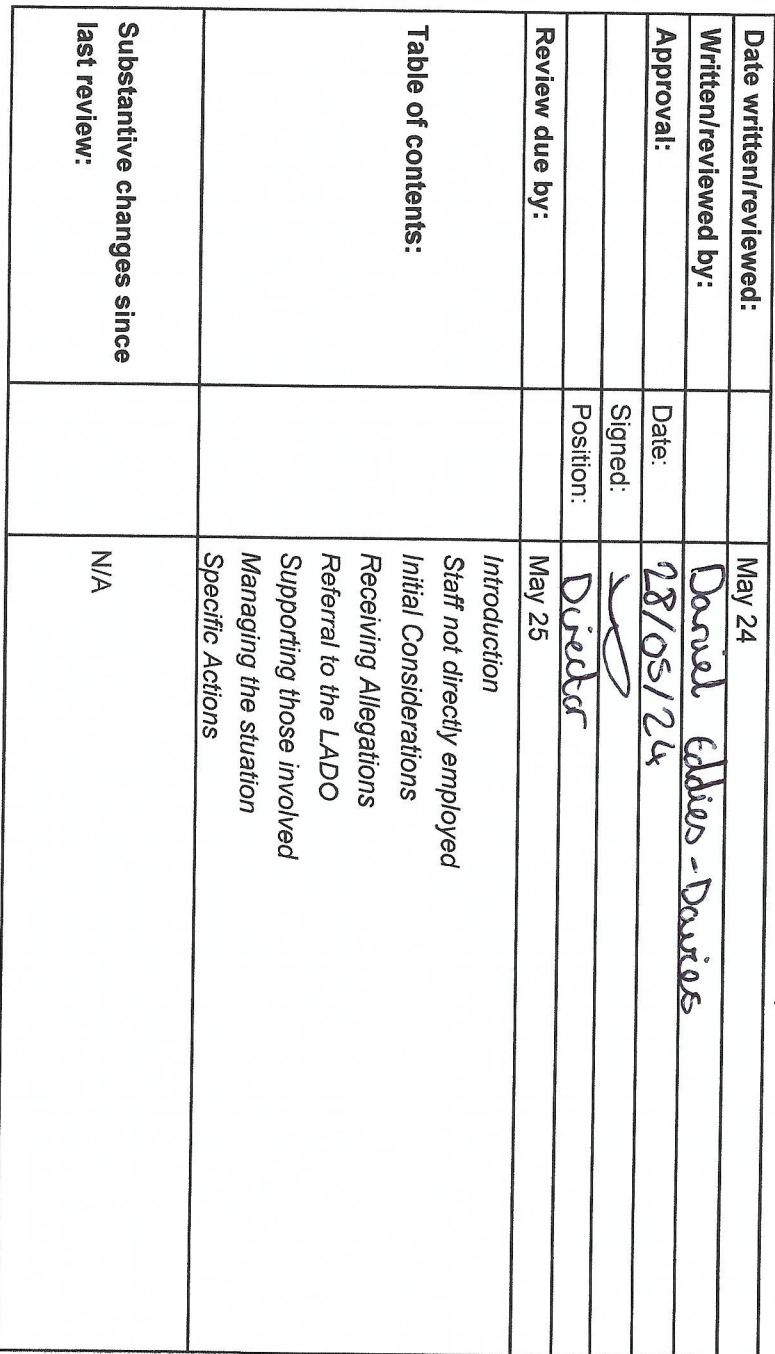 Date written/reviewed: May 24
Written/reviewed by: Daniel Eddies-Davies
Approval: Date: 28/05/24
Signed:
Position: Director
Review due by: May 25
Table of contents:
Introduction
Staff not directly employed
Initial Considerations
Receiving Allegations
Referral to the LADO
Supporting those involved
Managing the stuation
Specific Actions
Substantive changes since
last review:
N/A